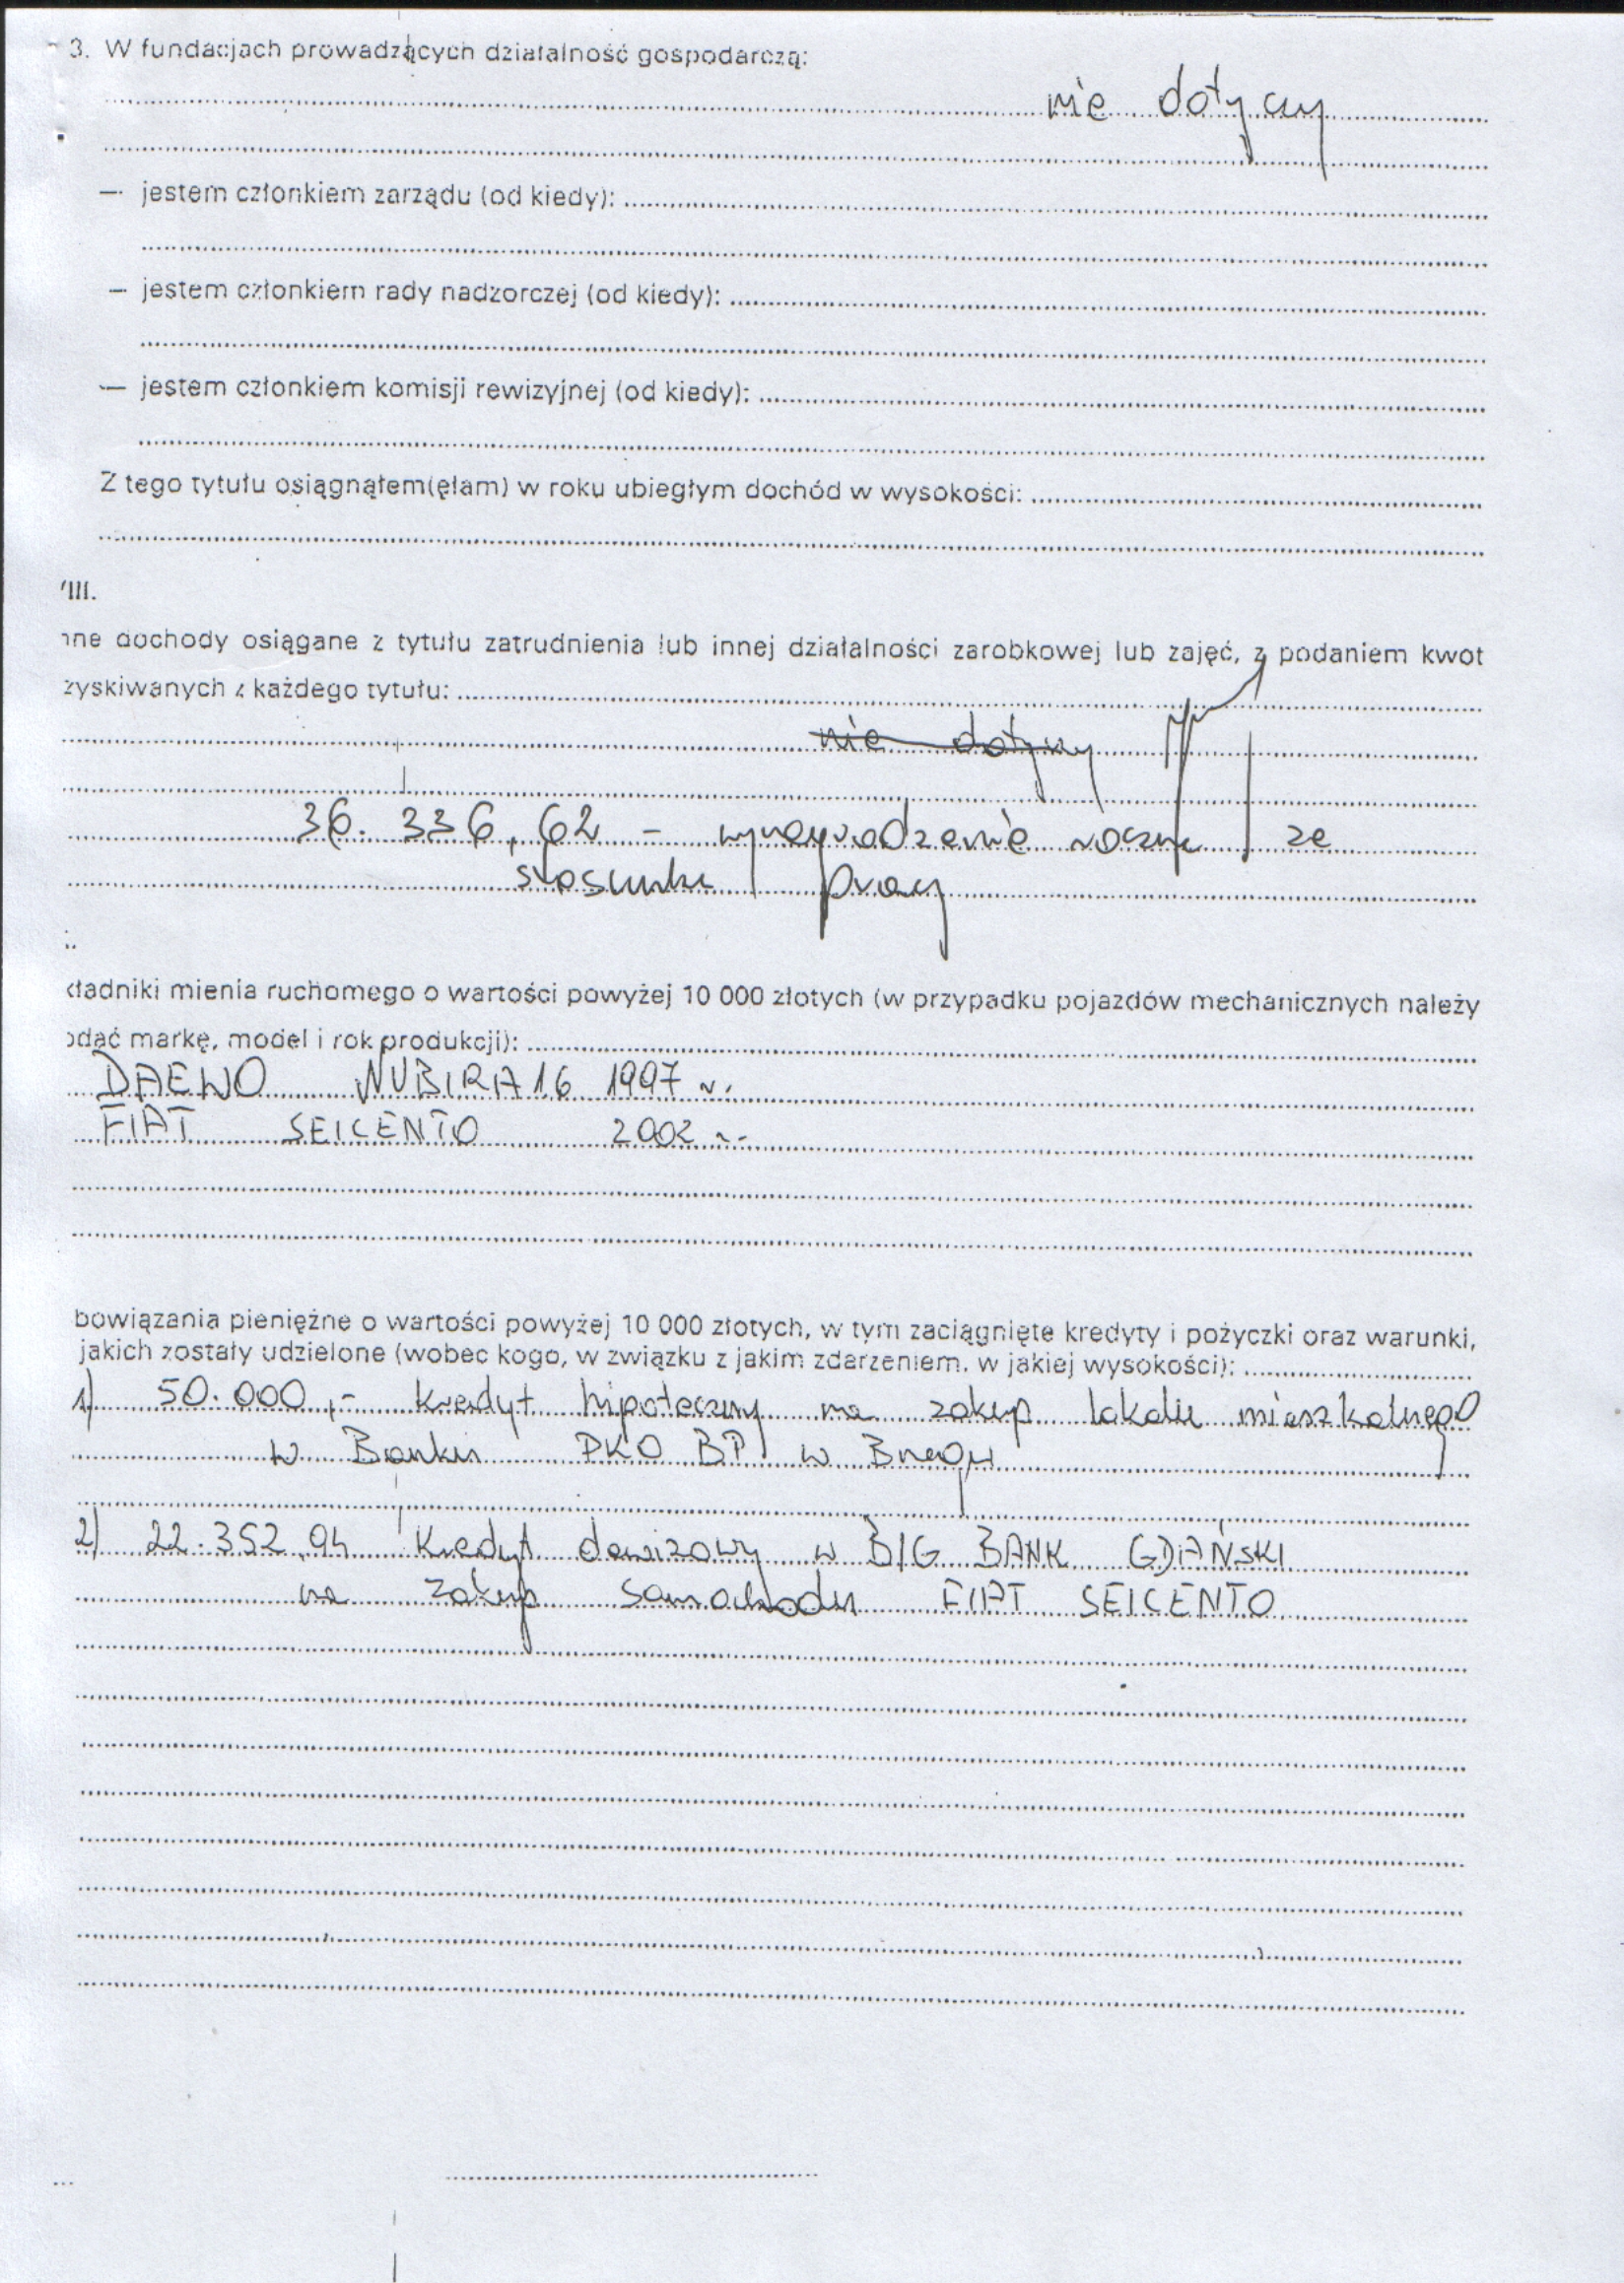 3. W fundacjach prowadzących działalność gospodarczą:
nie dotyczy
— jestem członkiem zarządu (od kiedy):
— jestem członkiem rady nadzorczej (od kiedy):
— jestem członkiem komisji rewizyjnej (od kiedy):
Z tego tytułu osiągnąłem(ęłam) w roku ubiegłym dochód w wysokości:
'III.
nne dochody osiągane z tytułu zatrudnienia lub innej działalności zarobkowej lub zajęć, z podaniem kwot
zyskiwanych z każdego tytułu:
nie dotyczy
36.336,62 - wynagrodzenie roczne ze
stosunku pracy
kładniki mienia ruchomego o wartości powyżej 10 000 złotych (w przypadku pojazdów mechanicznych należy
odać markę, model i rok produkcji):
DAEWO NUBIRA 16 1997 r.
FIAT SEICENTO 2002 r.
bowiązania pieniężne o wartości powyżej 10 000 złotych, w tym zaciągnięte kredyty i pożyczki oraz warunki,
jakich zostały udzielone (wobec kogo, w związku z jakim zdarzeniem, w jakiej wysokości):
1) 50.000,- kredyt hipoteczny na zakup lokalu mieszkalnego
w Banku PKO BP w Brzegu
2) 22.352,94 Kredyt dewizowy w BIG BANK GDAŃSKI
na zakup samochodu FIAT SEICENTO